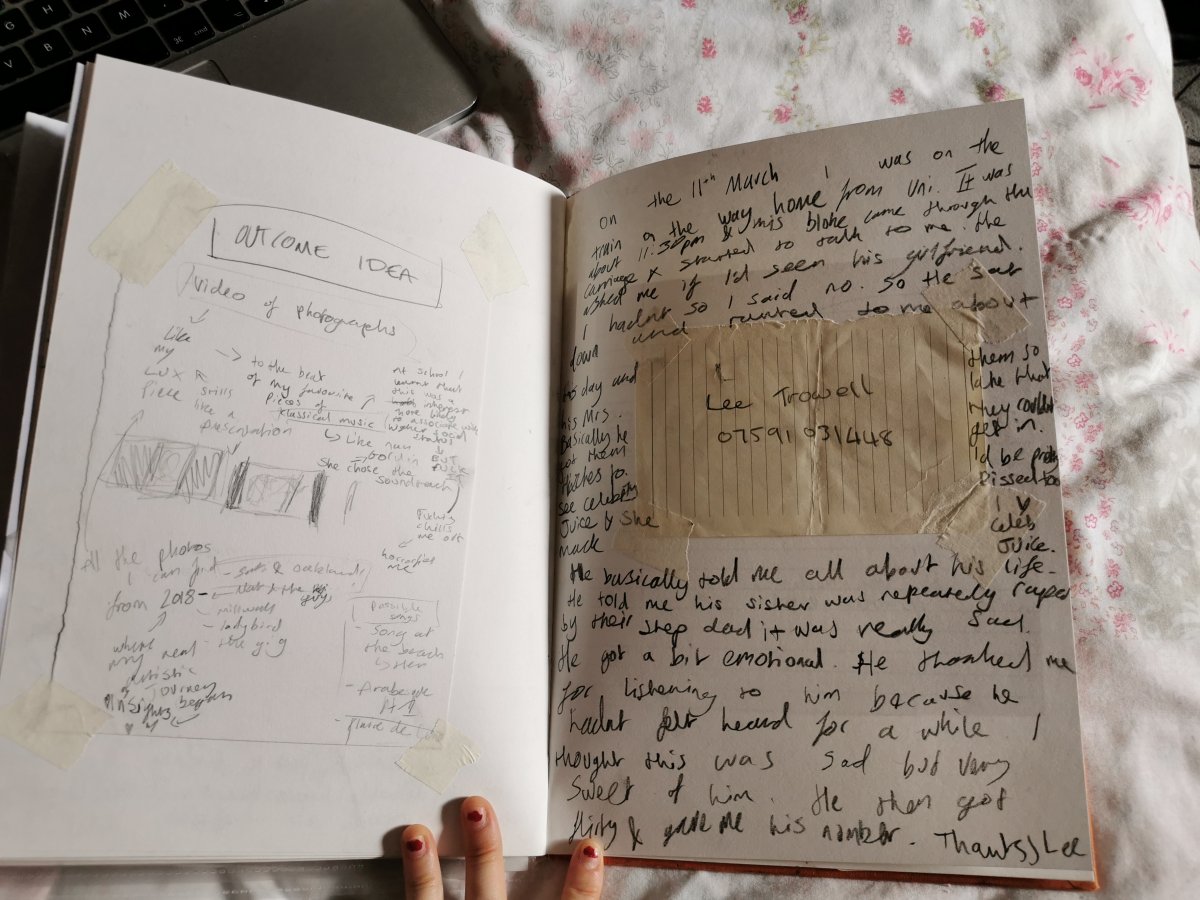 OUTCOME IDEA
video of photographs
Like
my
LUX
Piece stills
like a
presentation
-> to the beat
of my favourite
pieces of
classical music
At school I
learnt that
this was a
more likely
to associate with
higher social
status
BUT
Like Nan
Gordin
She chose the
soundtrack
chills
me out
horrorful
me
All the photos
I can find
from 2018 -
where
my real
artistic
Journey
began
- ladybird
Possible
songs
- Song at
the beach
Her
- Arabesque
on the 11th March I was on the
train on the way home from Uni. It was
about 11:30pm & this bloke came through the
carriage & started to talk to me. He
asked me if I'd seen his girlfriend.
I hadnt so I said no. So he sat
down and ranted to me about
his day and
his Mrs.
Basically he
got them
tickets to
see celebrity
Juice & she
made
Lee Trowell
07591 031448
them so
late that
they couldn't
get in.
I'd be
pissed too
I
Celeb
Juice.
He basically told me all about his life.
He told me his sister was repeatedly raped
by their step dad it was really sad.
He got a bit emotional. He thanked me
for listening to him because he
hadnt felt heard for a while I
thought this was sad but very
sweet of him. He then got
flirty & gave me his number. Thanks Lee